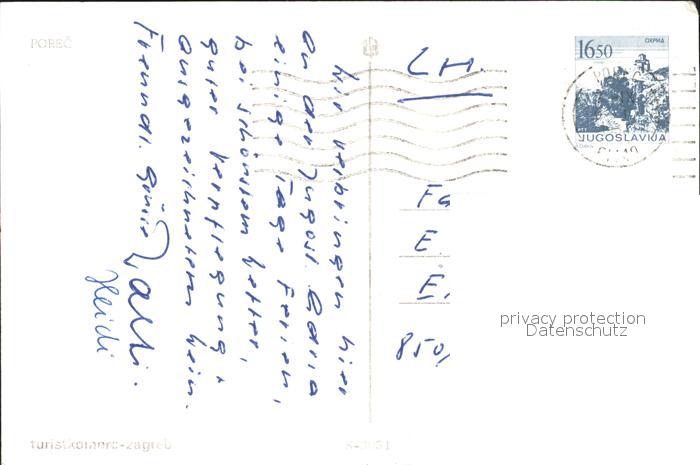 POREČ
Wir verbringen hier
an der Jugosl.
einige Tage Ferien,
bei schönstem Wetter,
guter Verpflegung +
ausgezeichnetem Wein.
Freundl. Grüsse
Heidi
CH.
Fa
E.
E.
850
16.50
ОХРИД
JUGOSLAVIJA
privacy protection
Datenschutz
turistkomerc-zagreb